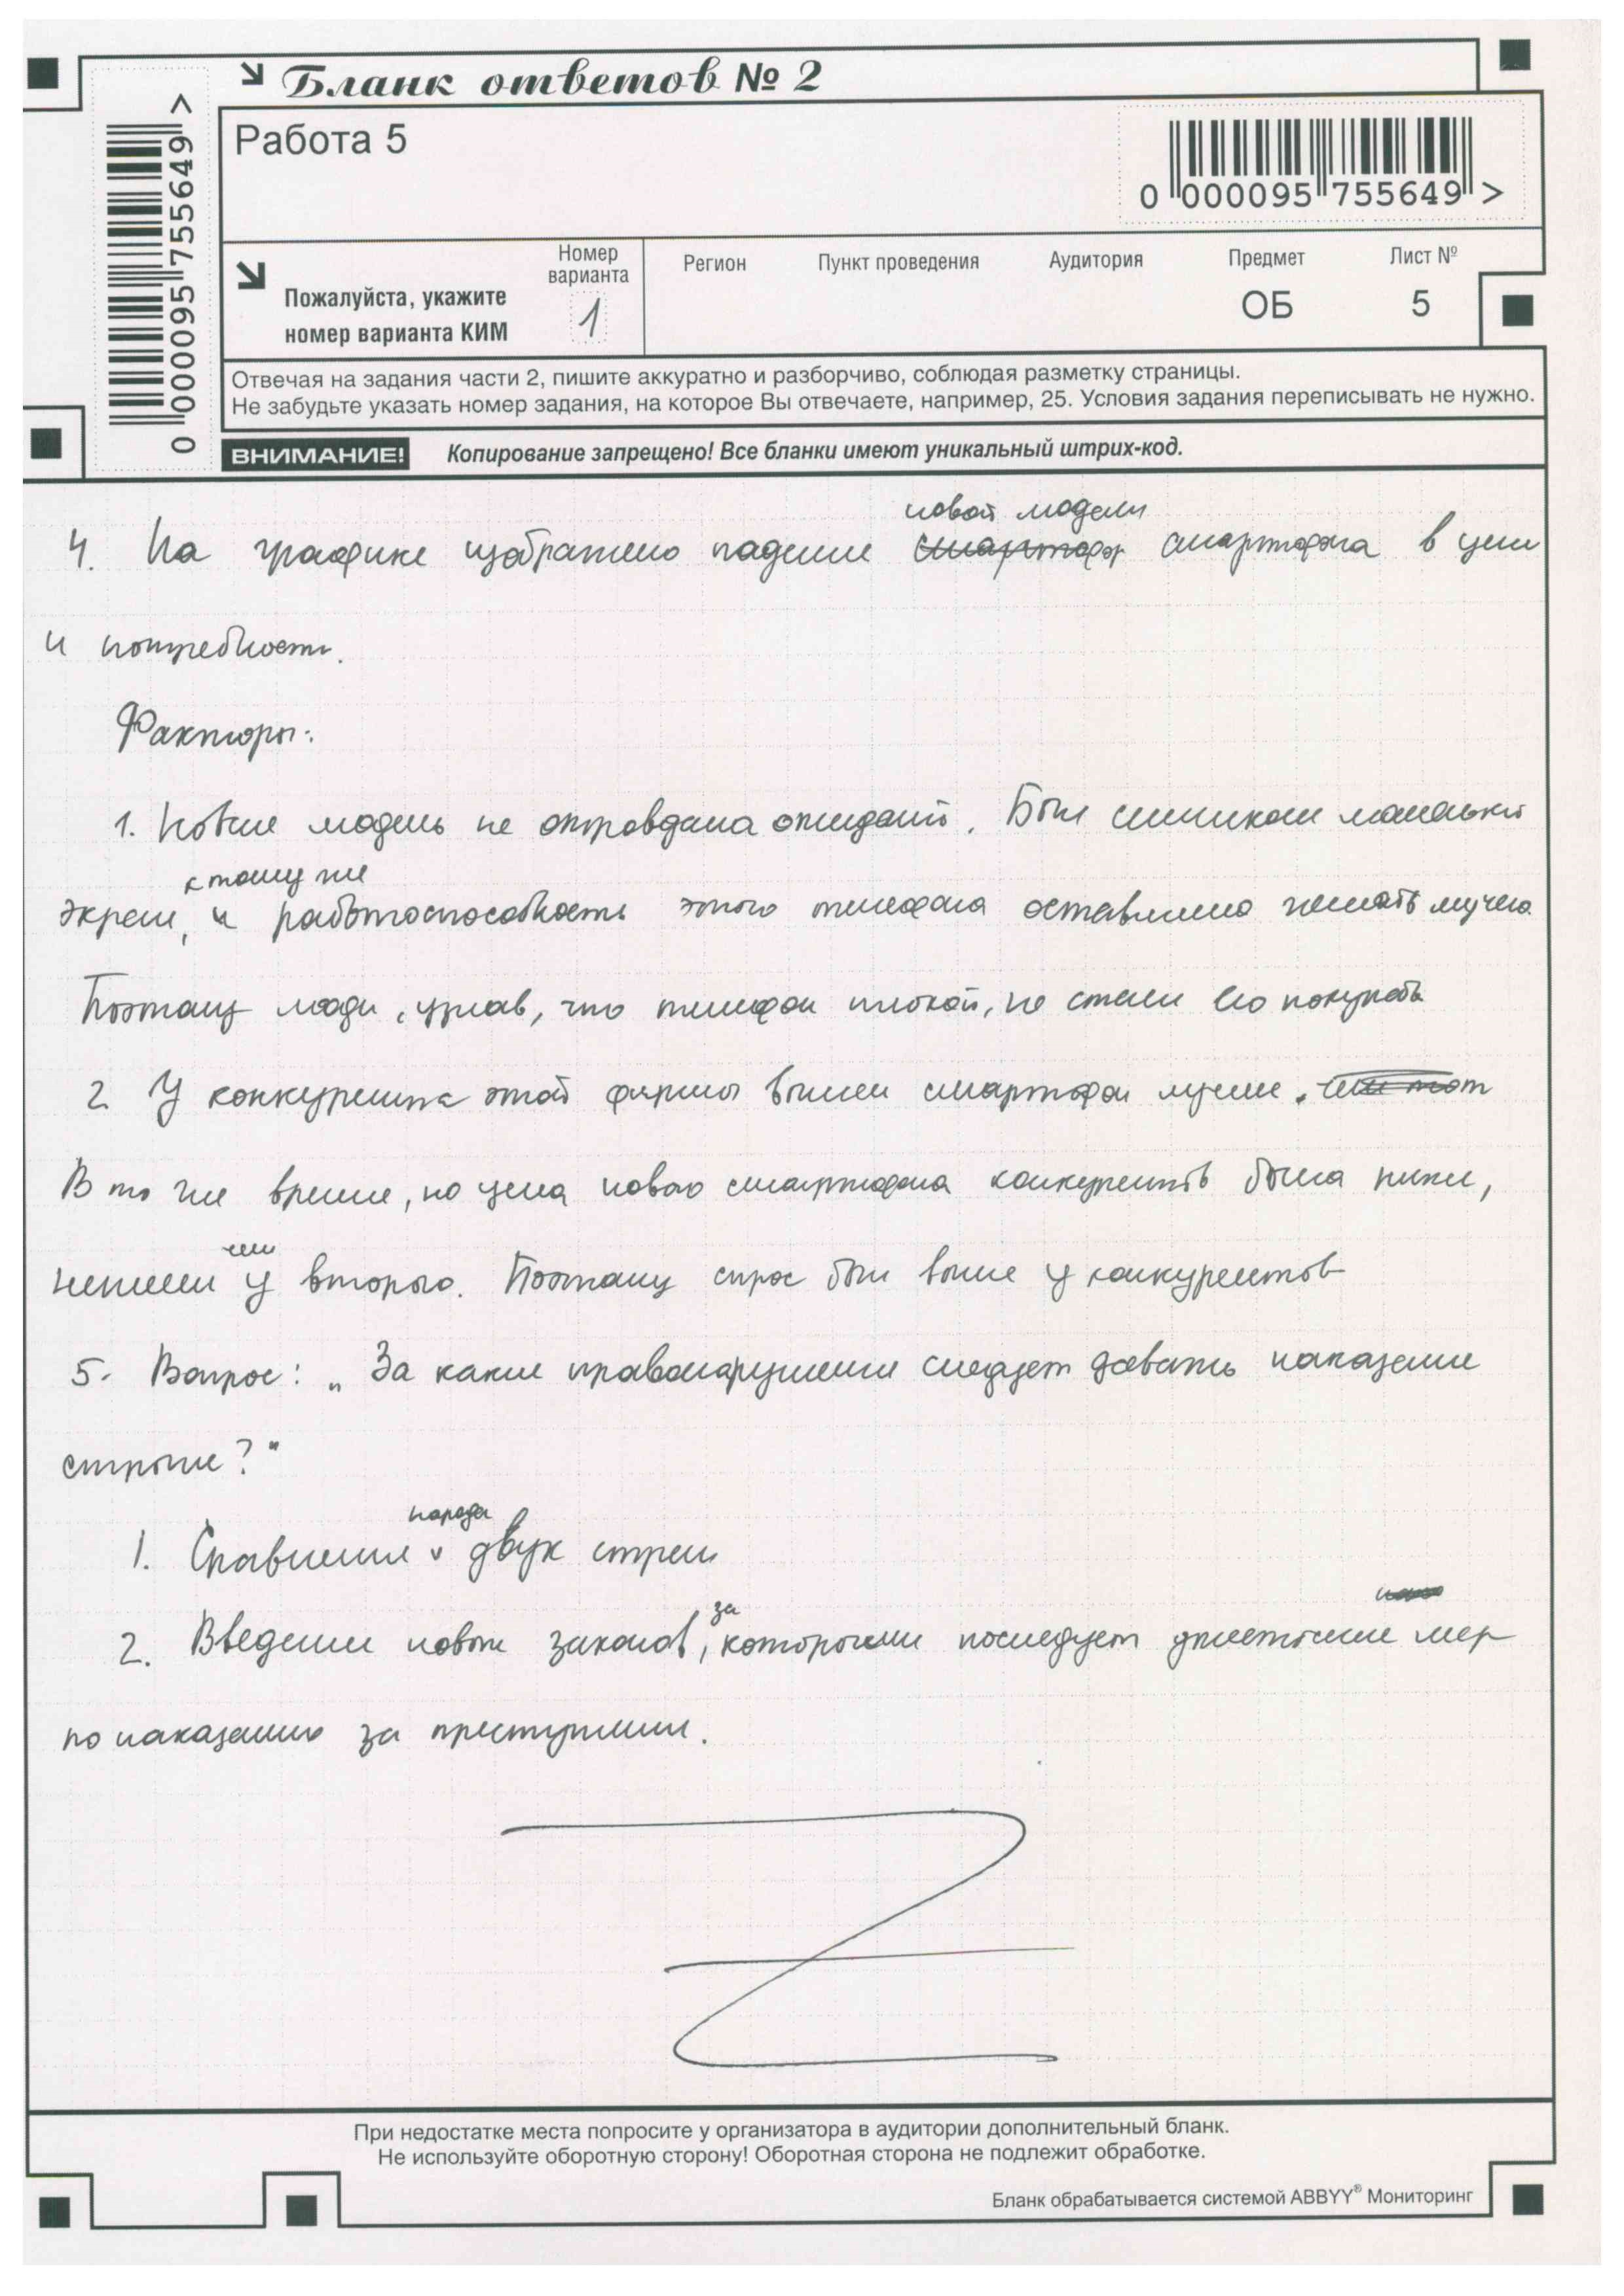 Бланк ответов № 2
Работа 5
0 000095 755649 >
0 000095 755649 >
Пожалуйста, укажите номер варианта КИМ
Номер варианта
1
Регион
Пункт проведения
Аудитория
Предмет
ОБ
Лист №
5
Отвечая на задания части 2, пишите аккуратно и разборчиво, соблюдая разметку страницы.
Не забудьте указать номер задания, на которое Вы отвечаете, например, 25. Условия задания переписывать не нужно.
ВНИМАНИЕ! Копирование запрещено! Все бланки имеют уникальный штрих-код.
4. На графике изображено падение новой модели смартфона в цене
и потребности.
Факторы:
1. Новые модель не оправдала ожиданий. Был слишком маленький
экран, к тому же и работоспособность этого телефона оставляло желать лучшего
Поэтому люди, узнав, что телефон плохой, не стали его покупать
2 У конкурента этой фирмы вышел смартфон лучше.
В то же время, но цена нового смартфона конкурентов была ниже,
нежели чем у второго. Поэтому спрос был выше у конкурентов
5. Вопрос: „За какие правонарушения следует давать наказание
строже?"
1. Сравнения народа двух стран
2. Введении новых законов, за которыми последует ужесточение мер
по наказанию за преступления.
При недостатке места попросите у организатора в аудитории дополнительный бланк.
Не используйте оборотную сторону! Оборотная сторона не подлежит обработке.
Бланк обрабатывается системой ABBYY® Мониторинг